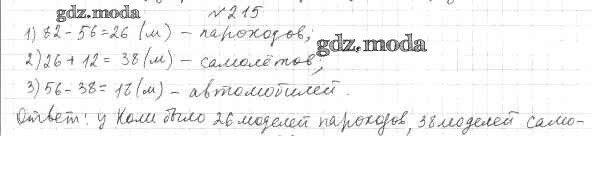 gdz.moda
№ 215
1) 82 - 56 = 26 (м) - пароходов;
gdz.moda
2) 26 + 12 = 38 (м) - самолётов;
3) 56 - 38 = 18 (м) - автомобилей.
Ответ: у Коли было 26 моделей пароходов, 38 моделей само-